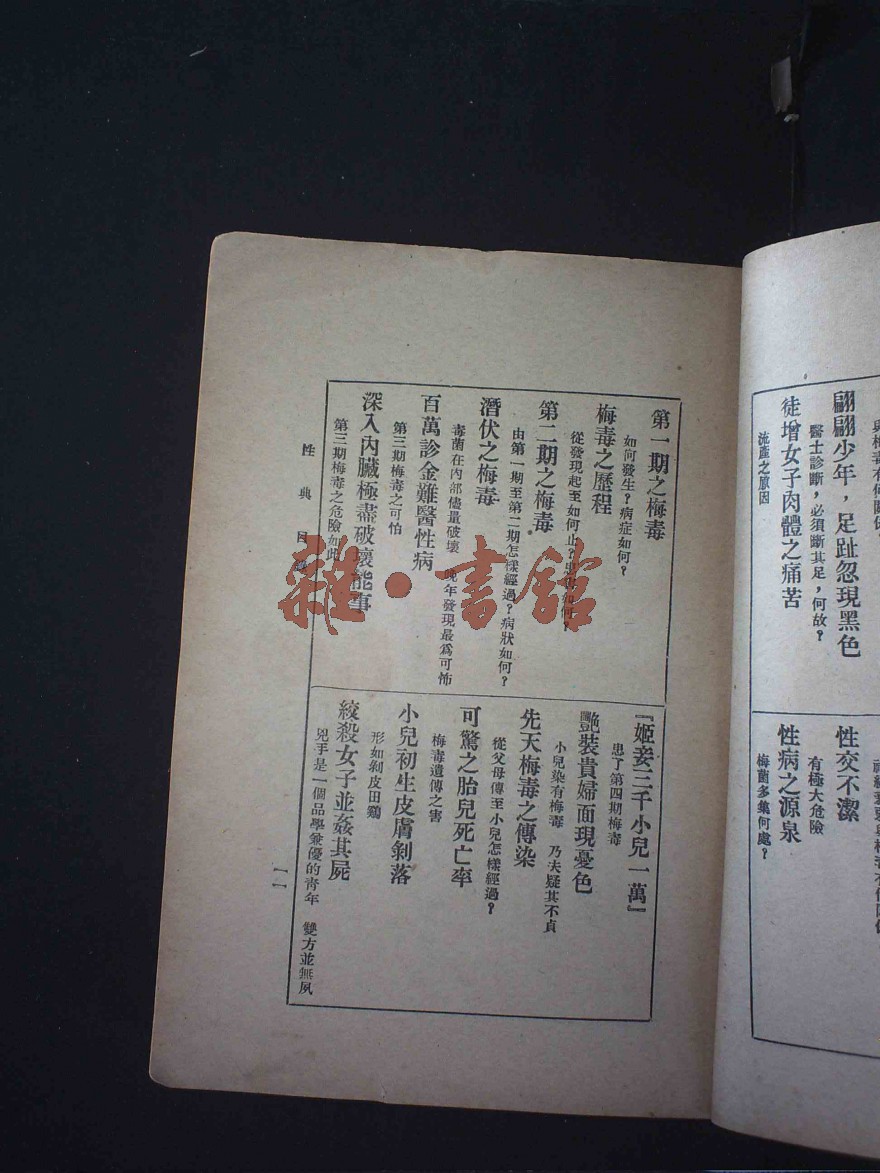 翩翩少年，足趾忽現黑色
醫士診斷，必須斷其足，何故？
徒增女子肉體之痛苦
流產之原因
性交不潔
有極大危險
性病之源泉
梅菌多集何處？
第一期之梅毒
如何發生？病症如何？
梅毒之歷程
從發現起至如何止？
第二期之梅毒
由第一期至第二期怎樣經過？病狀如何？
潛伏之梅毒
毒菌在內部儘量破壞　晚年發現最爲可怖
百萬診金難醫性病
第三期梅毒之可怕
深入內臟極盡破壞能事
第三期梅毒之危險如此
『姬妾三千小兒一萬』
患了第四期梅毒
艷裝貴婦面現憂色
小兒染有梅毒　乃夫疑其不貞
先天梅毒之傳染
從父母傳至小兒怎樣經過？
可驚之胎兒死亡率
梅毒遺傳之害
小兒初生皮膚剝落
形如剝皮田鷄
絞殺女子並姦其屍
兇手是一個品學兼優的青年　雙方並無夙
性典目
一一
雜·書館